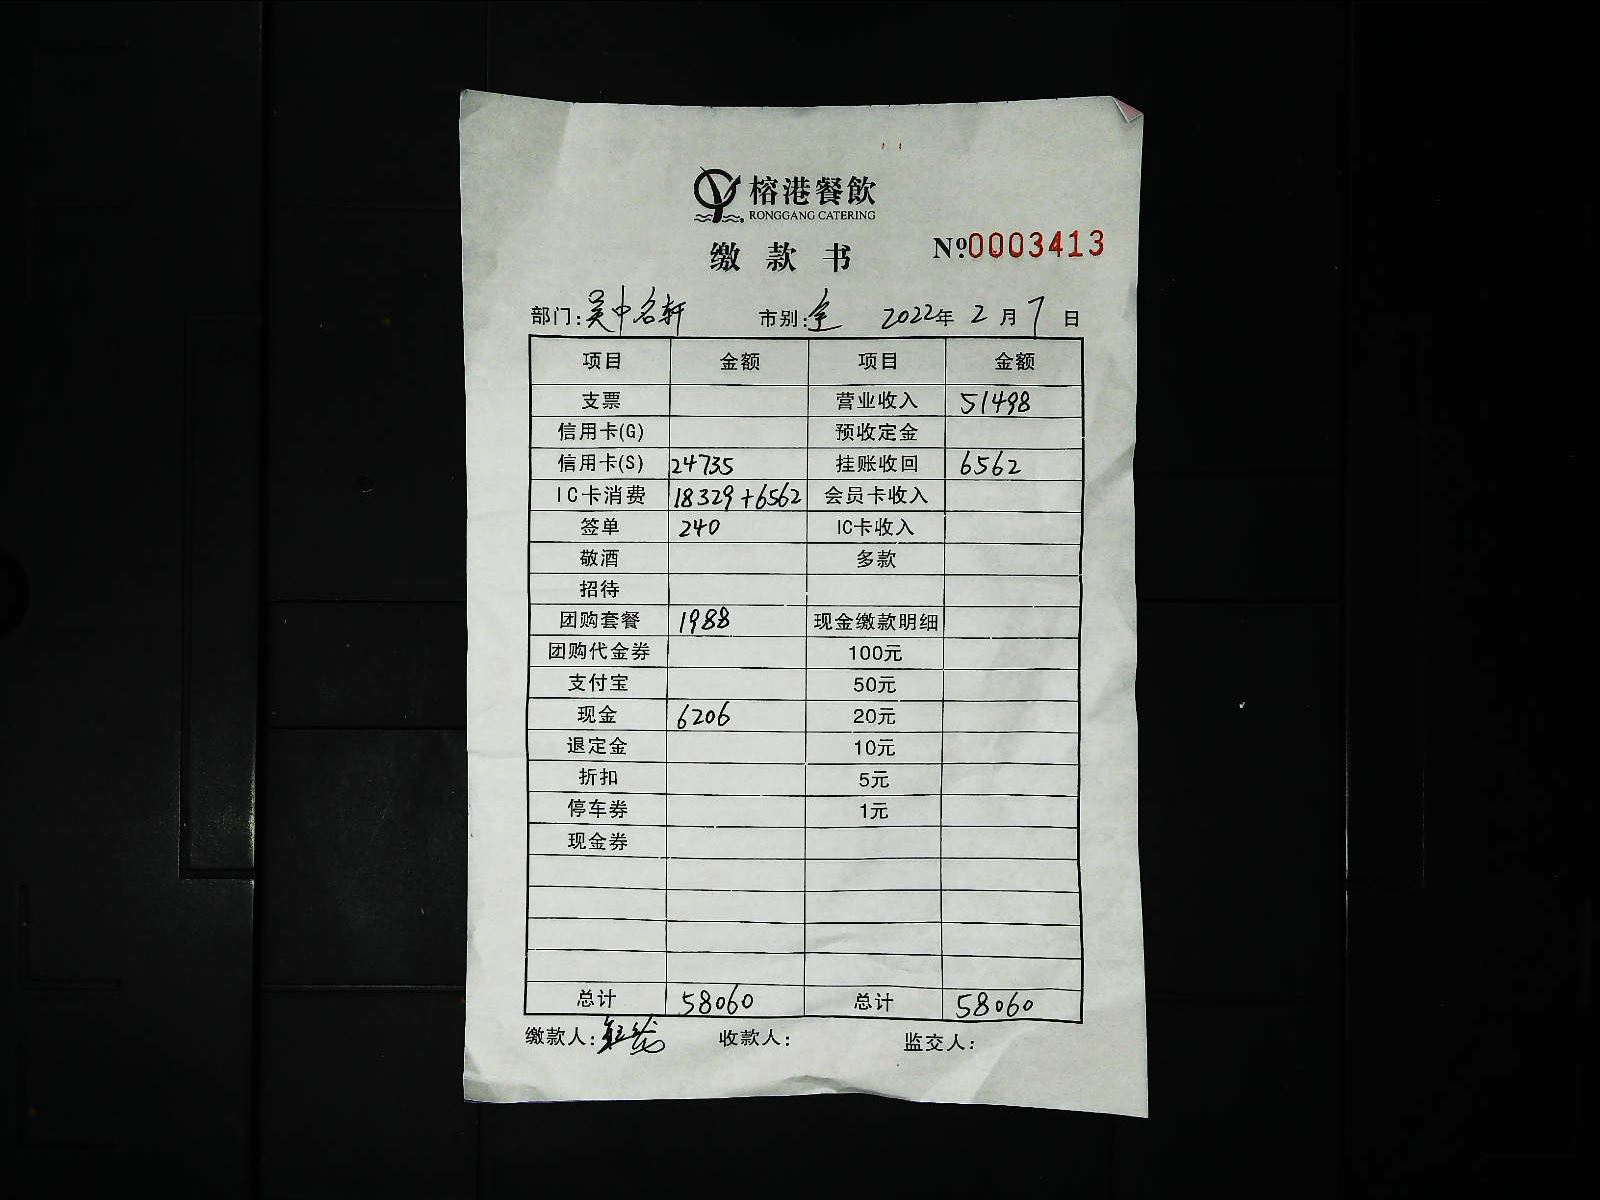 榕港餐飲
RONGGANG CATERING
缴款书 №0003413
部门:吴中名轩 市别:全 2022年2月7日
项目 金额 项目 金额
支票 营业收入 51498
信用卡(G) 预收定金
信用卡(S) 24735 挂账收回 6562
IC卡消费 18329+6562 会员卡收入
签单 240 IC卡收入
敬酒 多款
招待
团购套餐 1988 现金缴款明细
团购代金券 100元
支付宝 50元
现金 6206 20元
退定金 10元
折扣 5元
停车券 1元
现金券
总计 58060 总计 58060
缴款人: 收款人: 监交人: